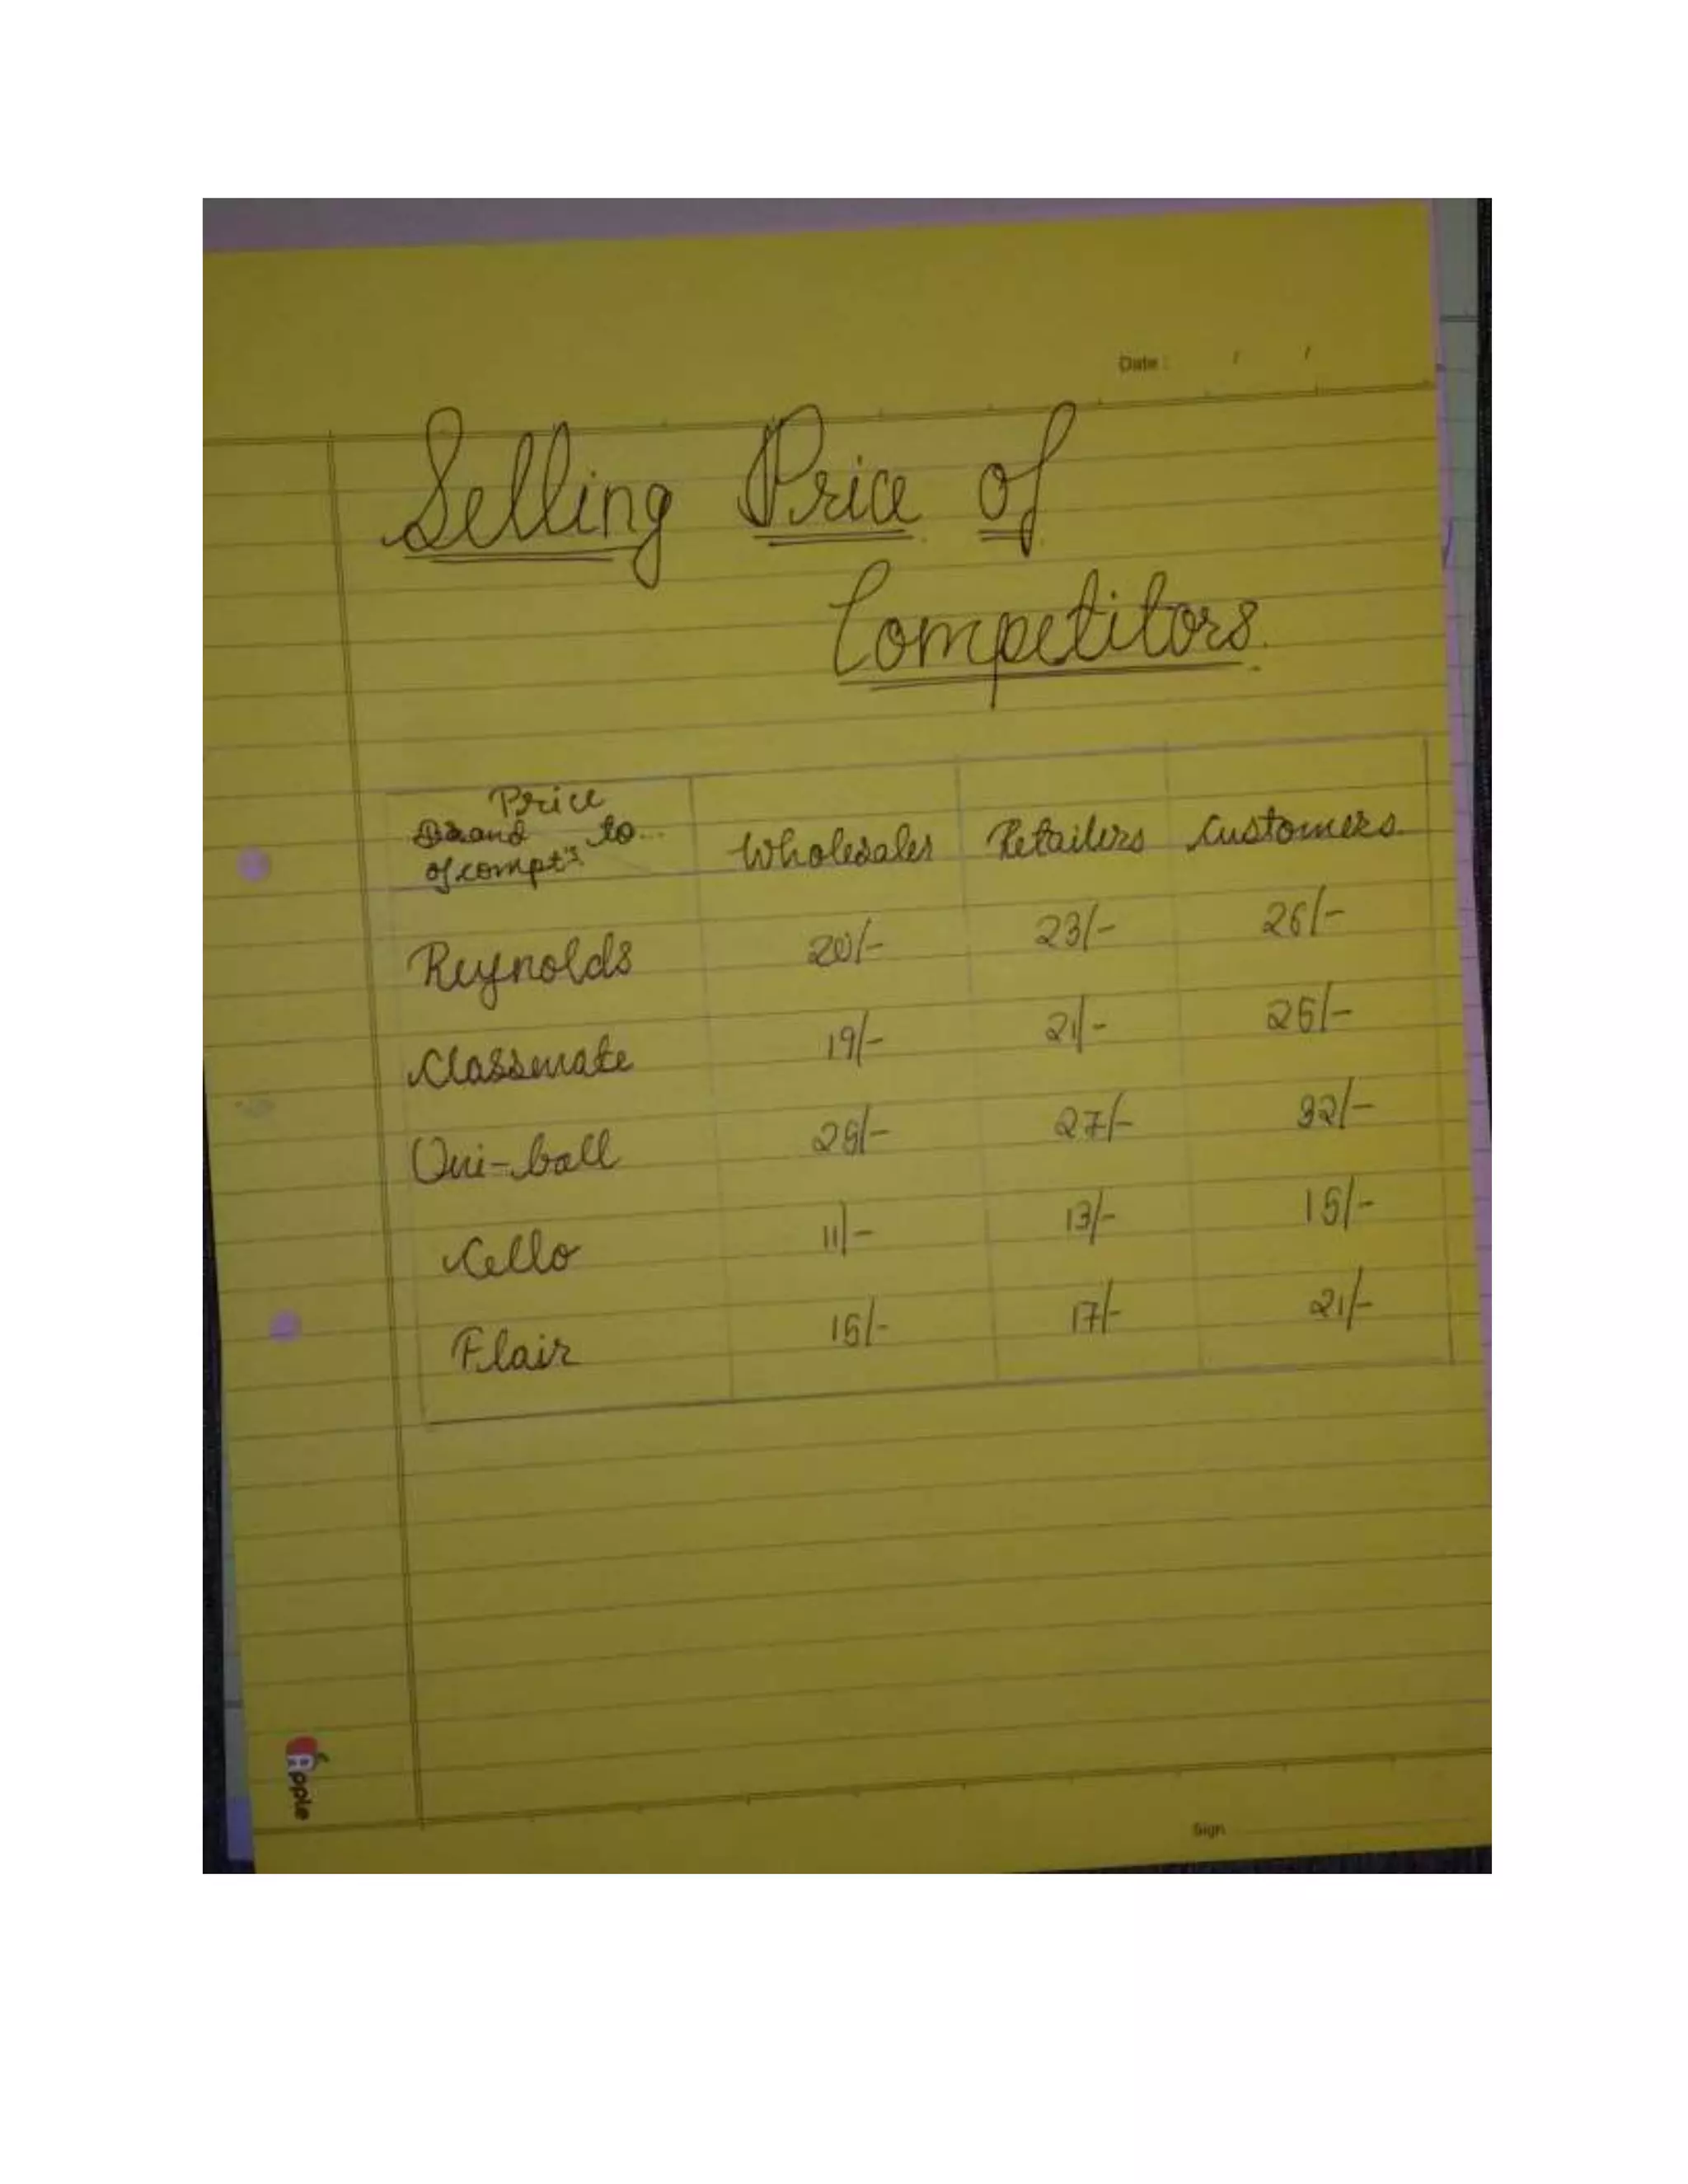 Date : / /
Selling Price of
Competitors.
Price to...
Brand of compt's Wholesaler Retailers Customers
Reynolds 20/- 23/- 26/-
Classmate 19/- 21/- 25/-
Uni-ball 25/- 27/- 32/-
Cello 11/- 13/- 15/-
Flair 15/- 17/- 21/-
Apple
Sign